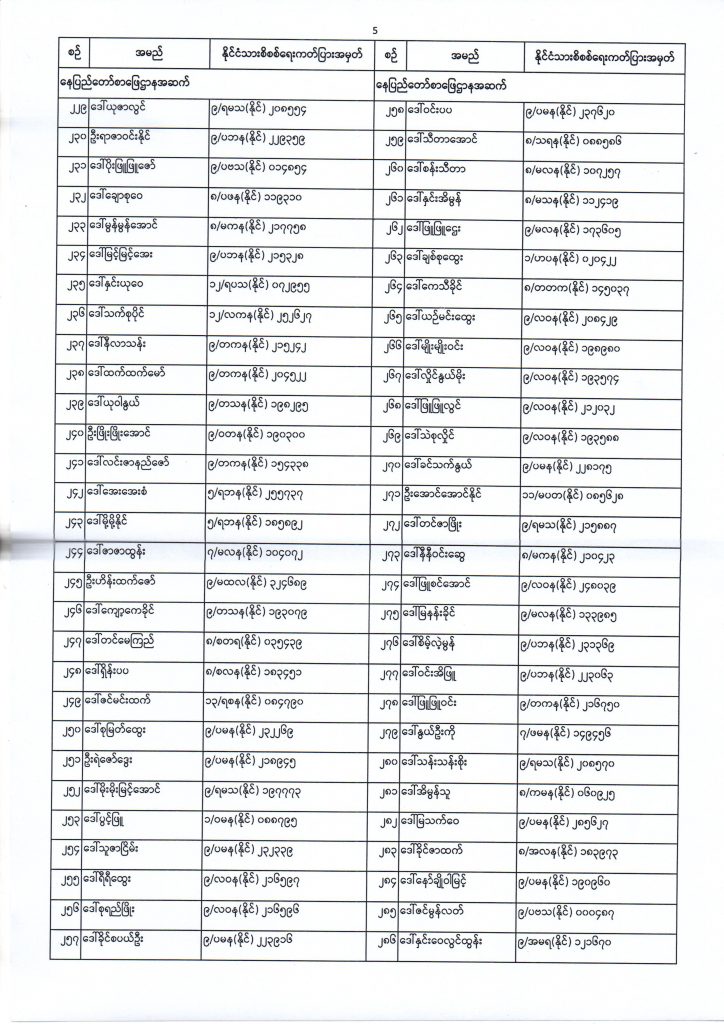 5
စဉ် အမည် နိုင်ငံသားစိစစ်ရေးကတ်ပြားအမှတ်
နေပြည်တော်စာဖြေဌာနအဆက်
၂၂၉ ဒေါ်ယုဇာလွင် ၉/ရမသ(နိုင်) ၂၀၈၅၅၄
၂၃၀ ဦးရာဇာဝင်းနိုင် ၉/ပဘန(နိုင်) ၂၂၉၃၅၉
၂၃၁ ဒေါ်ပိုးဖြူဖြူဇော် ၉/ပဗသ(နိုင်) ၀၁၄၈၅၄
၂၃၂ ဒေါ်ချောစုဝေ ၈/ပဖန(နိုင်) ၁၁၉၃၁၀
၂၃၃ ဒေါ်မွန်မွန်အောင် ၈/မကန(နိုင်) ၂၁၇၇၅၈
၂၃၄ ဒေါ်မြင့်မြင့်အေး ၉/ပဘန(နိုင်) ၂၁၅၃၂၈
၂၃၅ ဒေါ်နှင်းယုဝေ ၁၂/ရပသ(နိုင်) ၀၇၂၉၅၅
၂၃၆ ဒေါ်သက်စုပိုင် ၁၂/လကန(နိုင်) ၂၅၂၆၂၇
၂၃၇ ဒေါ်နီလာသန်း ၉/တကန(နိုင်) ၂၁၅၂၄၂
၂၃၈ ဒေါ်ထက်ထက်မော် ၉/တကန(နိုင်) ၂၀၄၅၂၂
၂၃၉ ဒေါ်ယုဝါနွယ် ၉/တသန(နိုင်) ၁၉၈၂၉၅
၂၄၀ ဦးဖြိုးဖြိုးအောင် ၉/ဝတန(နိုင်) ၁၉၀၃၀၀
၂၄၁ ဒေါ်လင်းဇာနည်ဇော် ၉/တကန(နိုင်) ၁၅၄၃၃၈
၂၄၂ ဒေါ်အေးအေးစံ ၅/ရဘန(နိုင်) ၂၅၅၇၃၇
၂၄၃ ဒေါ်မို့မို့နိုင် ၅/ရဘန(နိုင်) ၁၈၅၈၉၂
၂၄၄ ဒေါ်ဇာဇာထွန်း ၇/မလန(နိုင်) ၁၀၄၀၇၂
၂၄၅ ဦးဟိန်းထက်ဇော် ၉/မထလ(နိုင်) ၃၂၄၆၈၉
၂၄၆ ဒေါ်ကျော့ကေခိုင် ၉/တသန(နိုင်) ၁၉၃၀၇၉
၂၄၇ ဒေါ်တင်မေကြည် ၈/စတရ(နိုင်) ၀၃၅၄၃၉
၂၄၈ ဒေါ်ရှိန်းပပ ၈/စလန(နိုင်) ၁၈၃၄၅၁
၂၄၉ ဒေါ်ဇင်မင်းထက် ၁၃/ရစန(နိုင်) ၀၈၄၇၉၀
၂၅၀ ဒေါ်စုမြတ်ထွေး ၉/ပမန(နိုင်) ၂၃၂၂၆၉
၂၅၁ ဦးရဲဇော်ဒွေး ၉/ပမန(နိုင်) ၂၁၈၉၄၅
၂၅၂ ဒေါ်မိုးမိုးမြင့်အောင် ၉/ရမသ(နိုင်) ၁၉၇၇၇၃
၂၅၃ ဒေါ်ပွင့်ဖြူ ၁/ဝမန(နိုင်) ၀၈၈၇၉၅
၂၅၄ ဒေါ်သူဇာငြိမ်း ၉/ပမန(နိုင်) ၂၃၂၃၃၉
၂၅၅ ဒေါ်ရီရီထွေး ၉/လဝန(နိုင်) ၂၁၆၅၉၇
၂၅၆ ဒေါ်စုရည်ဖြိုး ၉/လဝန(နိုင်) ၂၁၆၅၉၆
၂၅၇ ဒေါ်ခိုင်စပယ်ဦး ၉/ပမန(နိုင်) ၂၂၃၉၁၆
စဉ် အမည် နိုင်ငံသားစိစစ်ရေးကတ်ပြားအမှတ်
နေပြည်တော်စာဖြေဌာနအဆက်
၂၅၈ ဒေါ်ဝင်းပပ ၉/ပမန(နိုင်) ၂၃၇၆၂၀
၂၅၉ ဒေါ်သီတာအောင် ၈/သရန(နိုင်) ၀၈၈၅၈၆
၂၆၀ ဒေါ်စန်းသီတာ ၈/မလန(နိုင်) ၁၀၇၂၅၇
၂၆၁ ဒေါ်နှင်းအိမွန် ၈/မသန(နိုင်) ၁၁၂၄၁၉
၂၆၂ ဒေါ်ဖြူဖြူဌေး ၉/မလန(နိုင်) ၁၇၃၆၀၅
၂၆၃ ဒေါ်ချစ်စုထွေး ၁/ဟပန(နိုင်) ၀၂၀၄၂၂
၂၆၄ ဒေါ်ကေသီခိုင် ၈/တတက(နိုင်) ၁၄၅၀၃၇
၂၆၅ ဒေါ်ယဉ်မင်းထွေး ၉/လဝန(နိုင်) ၂၀၈၄၂၉
၂၆၆ ဒေါ်မျိုးမျိုးဝင်း ၉/လဝန(နိုင်) ၁၉၈၉၈၀
၂၆၇ ဒေါ်လှိုင်နွယ်မိုး ၉/လဝန(နိုင်) ၁၉၃၅၇၄
၂၆၈ ဒေါ်ဖြူဖြူလွင် ၉/လဝန(နိုင်) ၂၁၂၀၃၂
၂၆၉ ဒေါ်သဲစုလှိုင် ၉/လဝန(နိုင်) ၁၉၃၅၈၈
၂၇၀ ဒေါ်ခင်သက်နွယ် ၉/ပမန(နိုင်) ၂၂၈၁၇၅
၂၇၁ ဦးအောင်အောင်နိုင် ၁၁/မပတ(နိုင်) ၀၈၅၆၂၈
၂၇၂ ဒေါ်တင်ဇာဖြိုး ၉/ရမသ(နိုင်) ၂၁၅၈၈၇
၂၇၃ ဒေါ်နီနီဝင်းဆွေ ၈/မကန(နိုင်) ၂၁၀၄၂၃
၂၇၄ ဒေါ်ဖြူစင်အောင် ၉/လဝန(နိုင်) ၂၄၈၀၃၉
၂၇၅ ဒေါ်မြနန်းခိုင် ၉/မလန(နိုင်) ၁၃၃၉၈၅
၂၇၆ ဒေါ်စိမ့်လဲ့မွန် ၉/ပဘန(နိုင်) ၂၃၁၃၆၉
၂၇၇ ဒေါ်ဝင်းအိဖြူ ၉/ပဘန(နိုင်) ၂၂၃၀၆၃
၂၇၈ ဒေါ်ဖြူဖြူဝင်း ၉/တကန(နိုင်) ၂၁၆၇၅၀
၂၇၉ ဒေါ်နွယ်ဦးကို ၇/ဖမန(နိုင်) ၁၄၉၄၅၆
၂၈၀ ဒေါ်သန်းသန်းစိုး ၉/ရမသ(နိုင်) ၂၀၈၅၇၀
၂၈၁ ဒေါ်အိမွန်သူ ၈/ကမန(နိုင်) ၀၆၀၉၂၅
၂၈၂ ဒေါ်မြသက်ဝေ ၉/ပမန(နိုင်) ၂၈၅၆၂၇
၂၈၃ ဒေါ်ခိုင်ဇာထက် ၈/အလန(နိုင်) ၁၈၃၉၇၃
၂၈၄ ဒေါ်နော်ချိုဝါမြင့် ၉/ပမန(နိုင်) ၁၉၀၉၆၀
၂၈၅ ဒေါ်ဇင်မွန်လတ် ၉/ပဗသ(နိုင်) ၀၀၀၄၈၇
၂၈၆ ဒေါ်နှင်းဝေလွင်ထွန်း ၉/အမရ(နိုင်) ၁၂၁၆၇၀